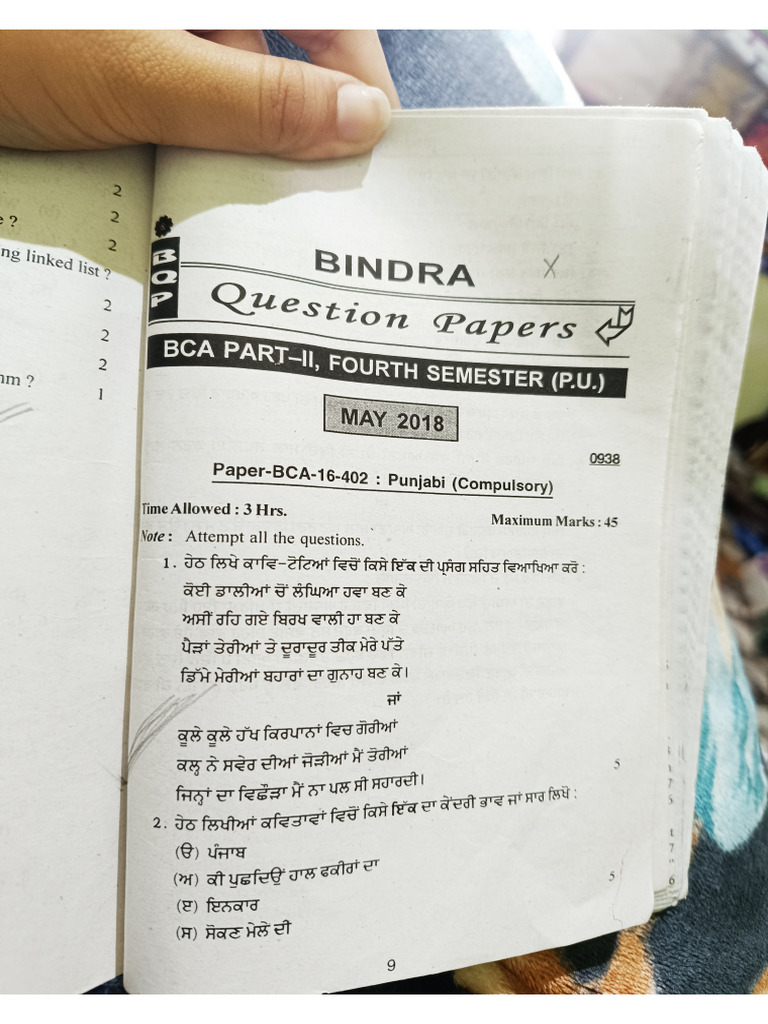 2
e ?
2
2
ng linked list ?
2
2
2
nm ?
1
BQP
BINDRA
X
Question Papers
BCA PART–II, FOURTH SEMESTER (P.U.)
MAY 2018
0938
Paper-BCA-16-402 : Punjabi (Compulsory)
Time Allowed : 3 Hrs.
Maximum Marks : 45
Note : Attempt all the questions.
1. ਹੇਠ ਲਿਖੇ ਕਾਵਿ-ਟੋਟਿਆਂ ਵਿਚੋਂ ਕਿਸੇ ਇੱਕ ਦੀ ਪ੍ਰਸੰਗ ਸਹਿਤ ਵਿਆਖਿਆ ਕਰੋ :
ਕੋਈ ਡਾਲੀਆਂ ਚੋਂ ਲੰਘਿਆ ਹਵਾ ਬਣ ਕੇ
ਅਸੀਂ ਰਹਿ ਗਏ ਬਿਰਖ ਵਾਲੀ ਹਾ ਬਣ ਕੇ
ਪੈੜਾਂ ਤੇਰੀਆਂ ਤੇ ਦੂਰਾਦੂਰ ਤੀਕ ਮੇਰੇ ਪੱਤੇ
ਡਿੱਮੇ ਮੇਰੀਆਂ ਬਹਾਰਾਂ ਦਾ ਗੁਨਾਹ ਬਣ ਕੇ।
ਜਾਂ
ਕੂਲੇ ਕੂਲੇ ਹੱਖ ਕਿਰਪਾਨਾਂ ਵਿਚ ਗੋਰੀਆਂ
ਕਲ੍ਹ ਨੇ ਸਵੇਰ ਦੀਆਂ ਜੋੜੀਆਂ ਮੈਂ ਤੋਰੀਆਂ
ਜਿਨ੍ਹਾਂ ਦਾ ਵਿਛੌੜਾ ਮੈਂ ਨਾ ਪਲ ਸੀ ਸਹਾਰਦੀ।
5
2. ਹੇਠ ਲਿਖੀਆਂ ਕਵਿਤਾਵਾਂ ਵਿਚੋਂ ਕਿਸੇ ਇੱਕ ਦਾ ਕੇਂਦਰੀ ਭਾਵ ਜਾਂ ਸਾਰ ਲਿਖੋ :
(ੳ) ਪੰਜਾਬ
(ਅ) ਕੀ ਪੁਛਦਿਉਂ ਹਾਲ ਫਕੀਰਾਂ ਦਾ
5
(ੲ) ਇਨਕਾਰ
(ਸ) ਸੋਕਣ ਮੇਲੇ ਦੀ
9